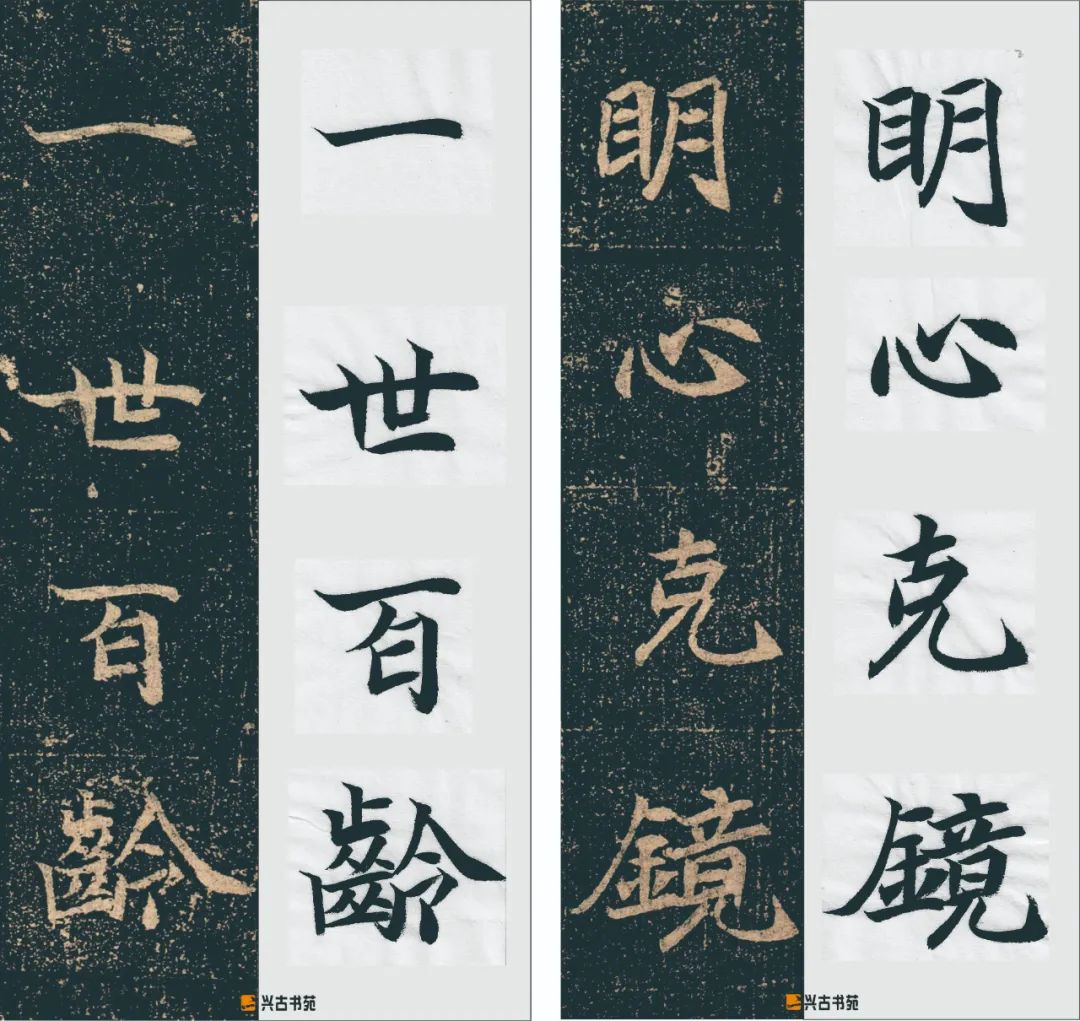 眀心克鏡
眀心克鏡
兴古书苑
一世百齡
一世百齡
兴古书苑